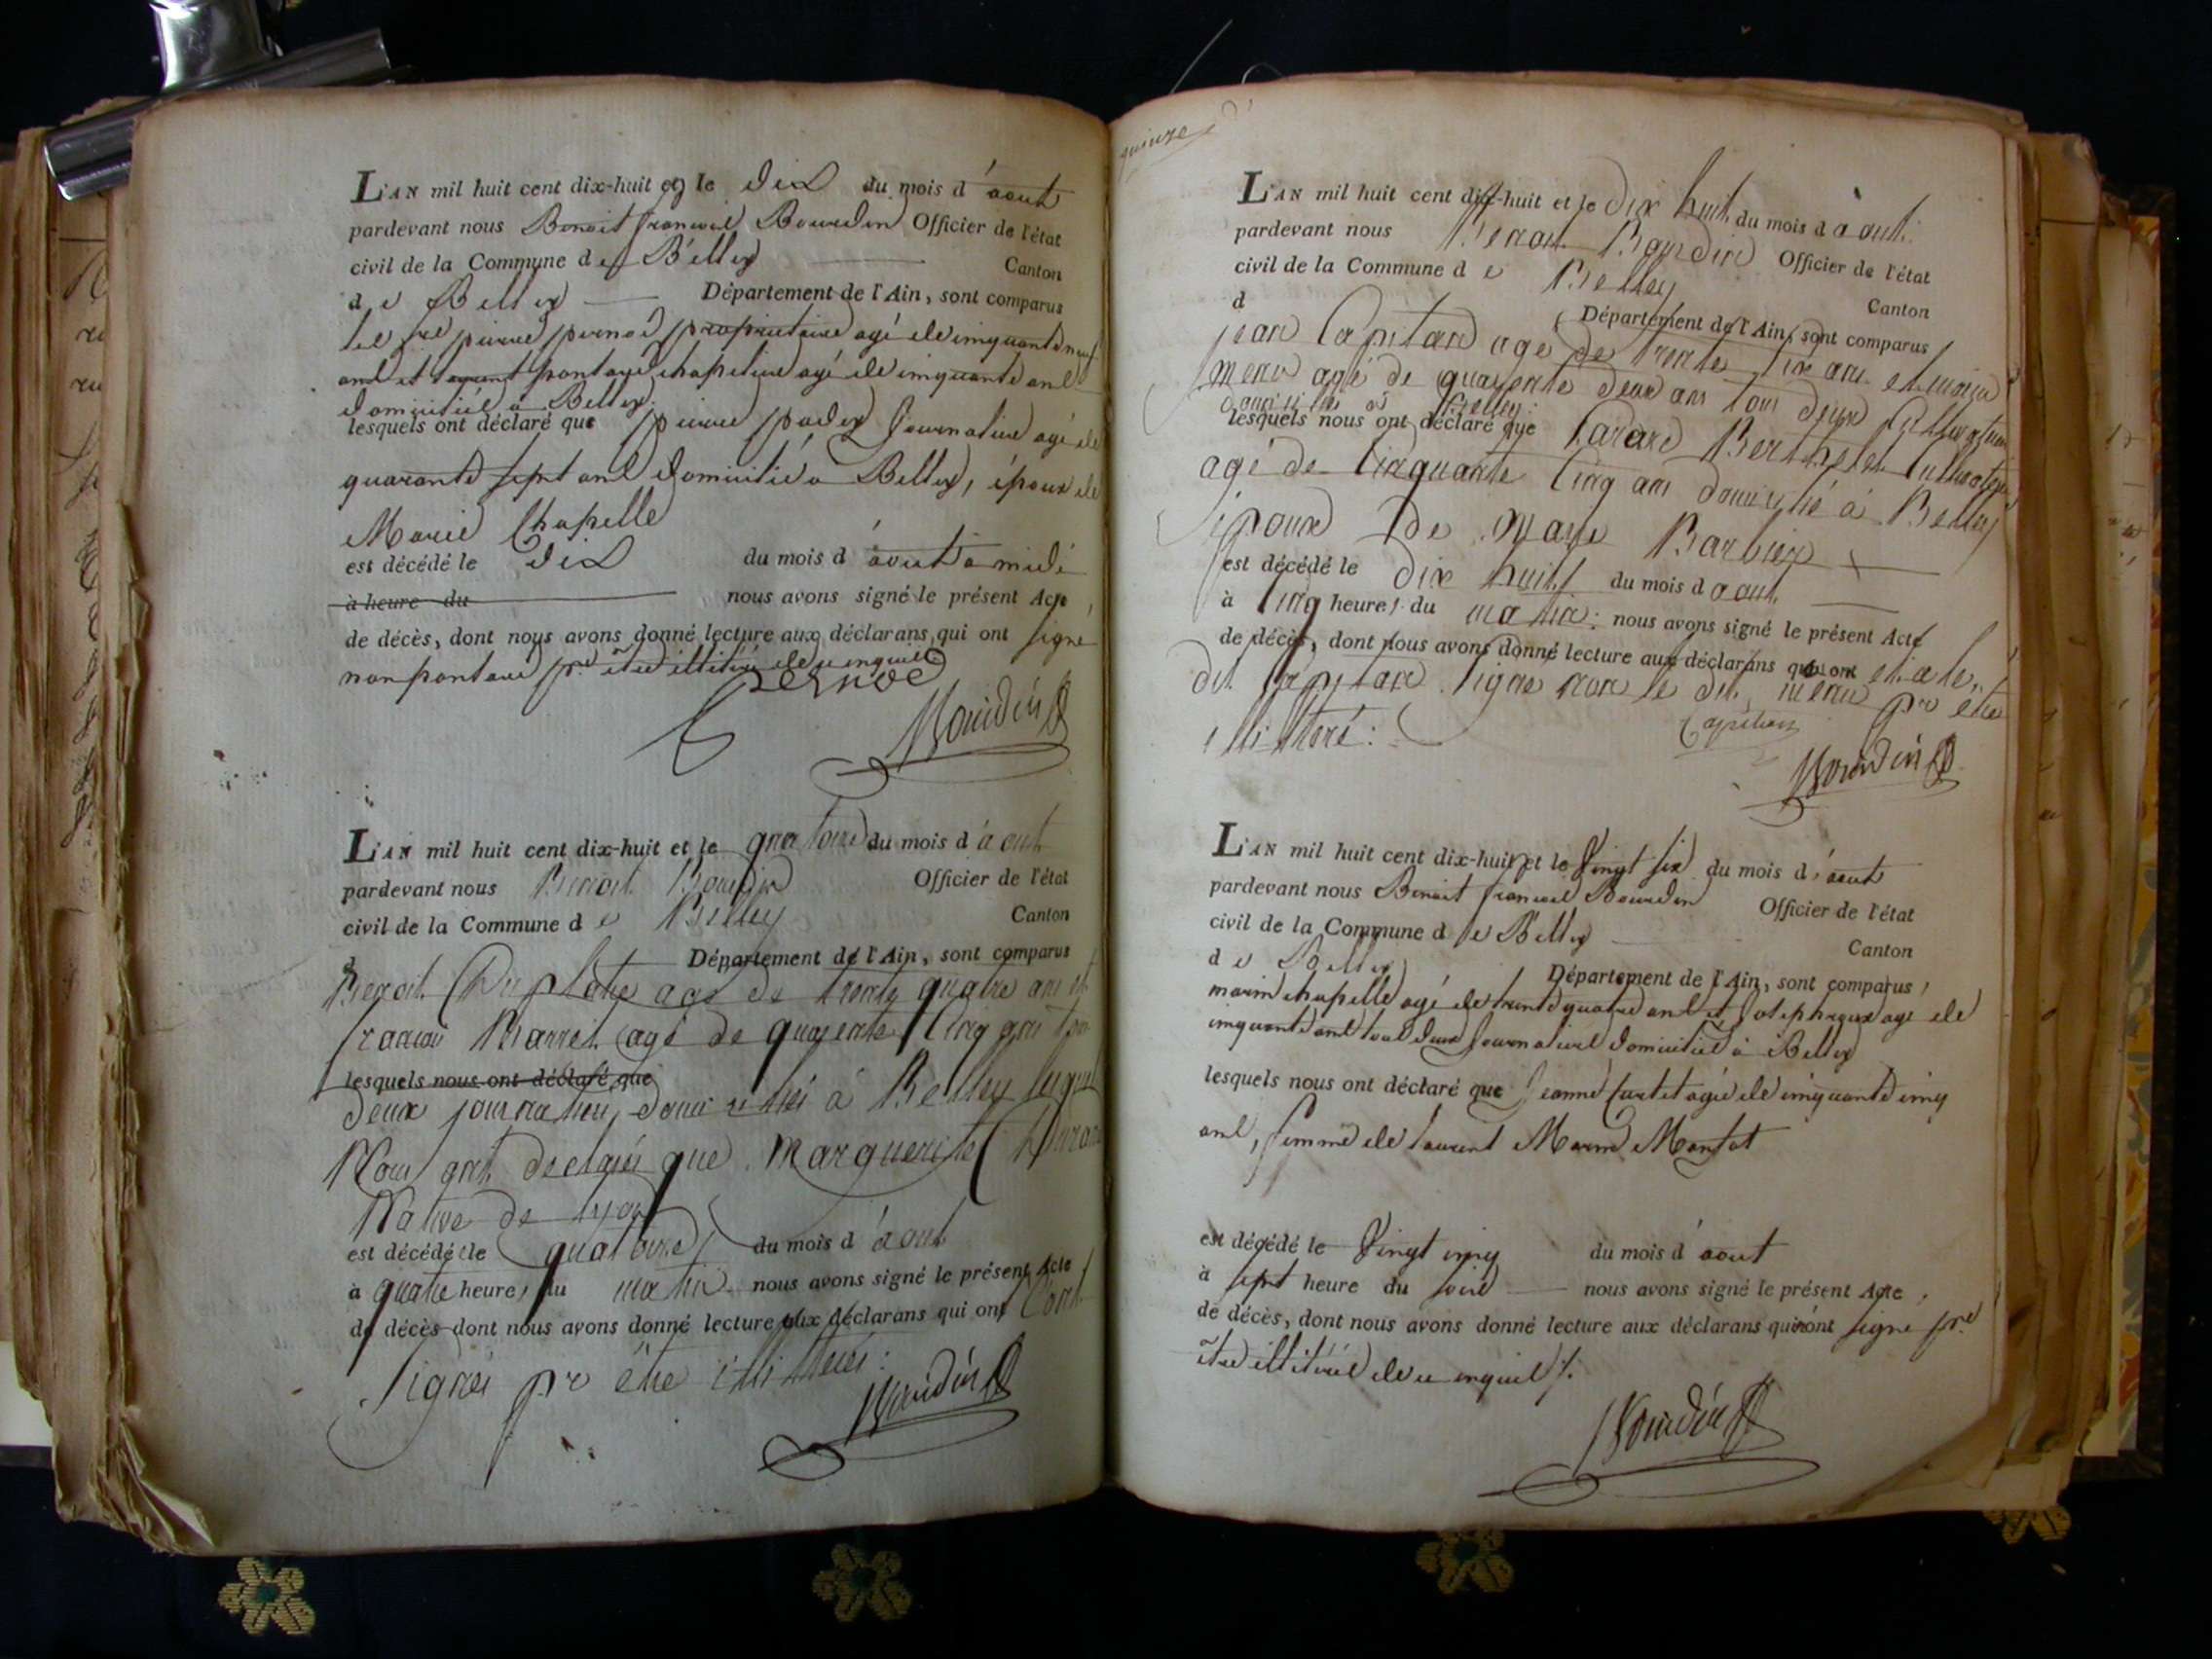 L'AN mil huit cent dix-huit et le dix du mois d'aout
pardevant nous Benoit francois Bourdin Officier de l'état
civil de la Commune de Belley Canton
de Belley Département de l'Ain, sont comparus
pierre pernod propriétaire agé de cinquante neuf
ans et pontare chapelier agé de cinquante ans
domiciliés a Belley
lesquels ont déclaré que pierre Journalier agé de
quarante sept ans domicilié a Belley, époux de
Marie Chapelle
est décédé le dix du mois d'aout a midi
à heure du nous avons signé le présent Acte
de décès, dont nous avons donné lecture aux déclarans qui ont signé
non pontare pr être illitéré de ce enquis
Bourdin
L'AN mil huit cent dix-huit et le quatorze du mois d'aout
pardevant nous Benoit Bourdin Officier de l'état
civil de la Commune de Belley Canton
d Département de l'Ain, sont comparus
Benoit agé de trente quatre ans et
francois Barret agé de quarente cinq ans tous
lesquels nous ont déclaré que
deux journaliers domiciliés à Belley lesquels
Nous ont declarés que Marguerite
Native de Lyon
est décédé le quatorze du mois d'aout
à quatre heures du matin nous avons signé le présent Acte
de décès dont nous avons donné lecture aux déclarans qui ont
signés pr être illitteré:
Bourdin
quinze
L'AN mil huit cent dix-huit et le dix huit du mois d'aout
pardevant nous Benoit Bourdin Officier de l'état
civil de la Commune de Belley
d Canton
Département de l'Ain, sont comparus
jean Capitan agé de trente six ans et
menu agé de quarente deux ans tous deux Cultivateurs
domiciliés à Belley
lesquels nous ont déclaré que Berthelet Cultivateur
agé de Cinquante Cinq ans domicilié à Belley
époux de Marie Barbier
est décédé le dix huit du mois d'aout
à cinq heures du matin: nous avons signé le présent Acte
de décès, dont nous avons donné lecture aux déclarans qui ont
dit Capitan signé non le dit menu pr être
illittéré:
Capitan
Bourdin
L'AN mil huit cent dix-huit et le vingt six du mois d'aout
pardevant nous Benoit francois Bourdin Officier de l'état
civil de la Commune de Belley
de Belley Canton
Département de l'Ain, sont comparus
marin chapelle agé de trente quatre ans et Joseph agé de
cinquante ans tous deux Journaliers domiciliés à Belley
lesquels nous ont déclaré que Jeanne Curtet agée de cinquante cinq
ans, femme de laurent Marin
est décédé le vingt cinq du mois d'aout
à sept heure du soir nous avons signé le présent Acte
de décès, dont nous avons donné lecture aux déclarans qui n'ont signé pr
être illitérés de ce enquis
Bourdin